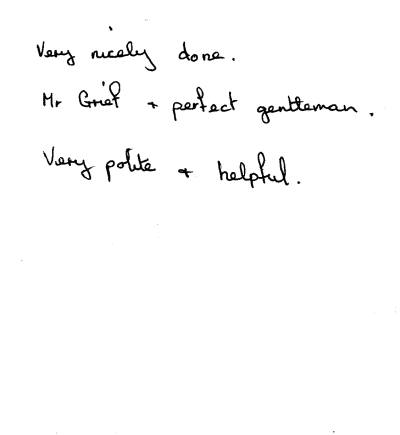 Very nicely done.
Mr Grief + perfect gentleman.
Very polite + helpful.